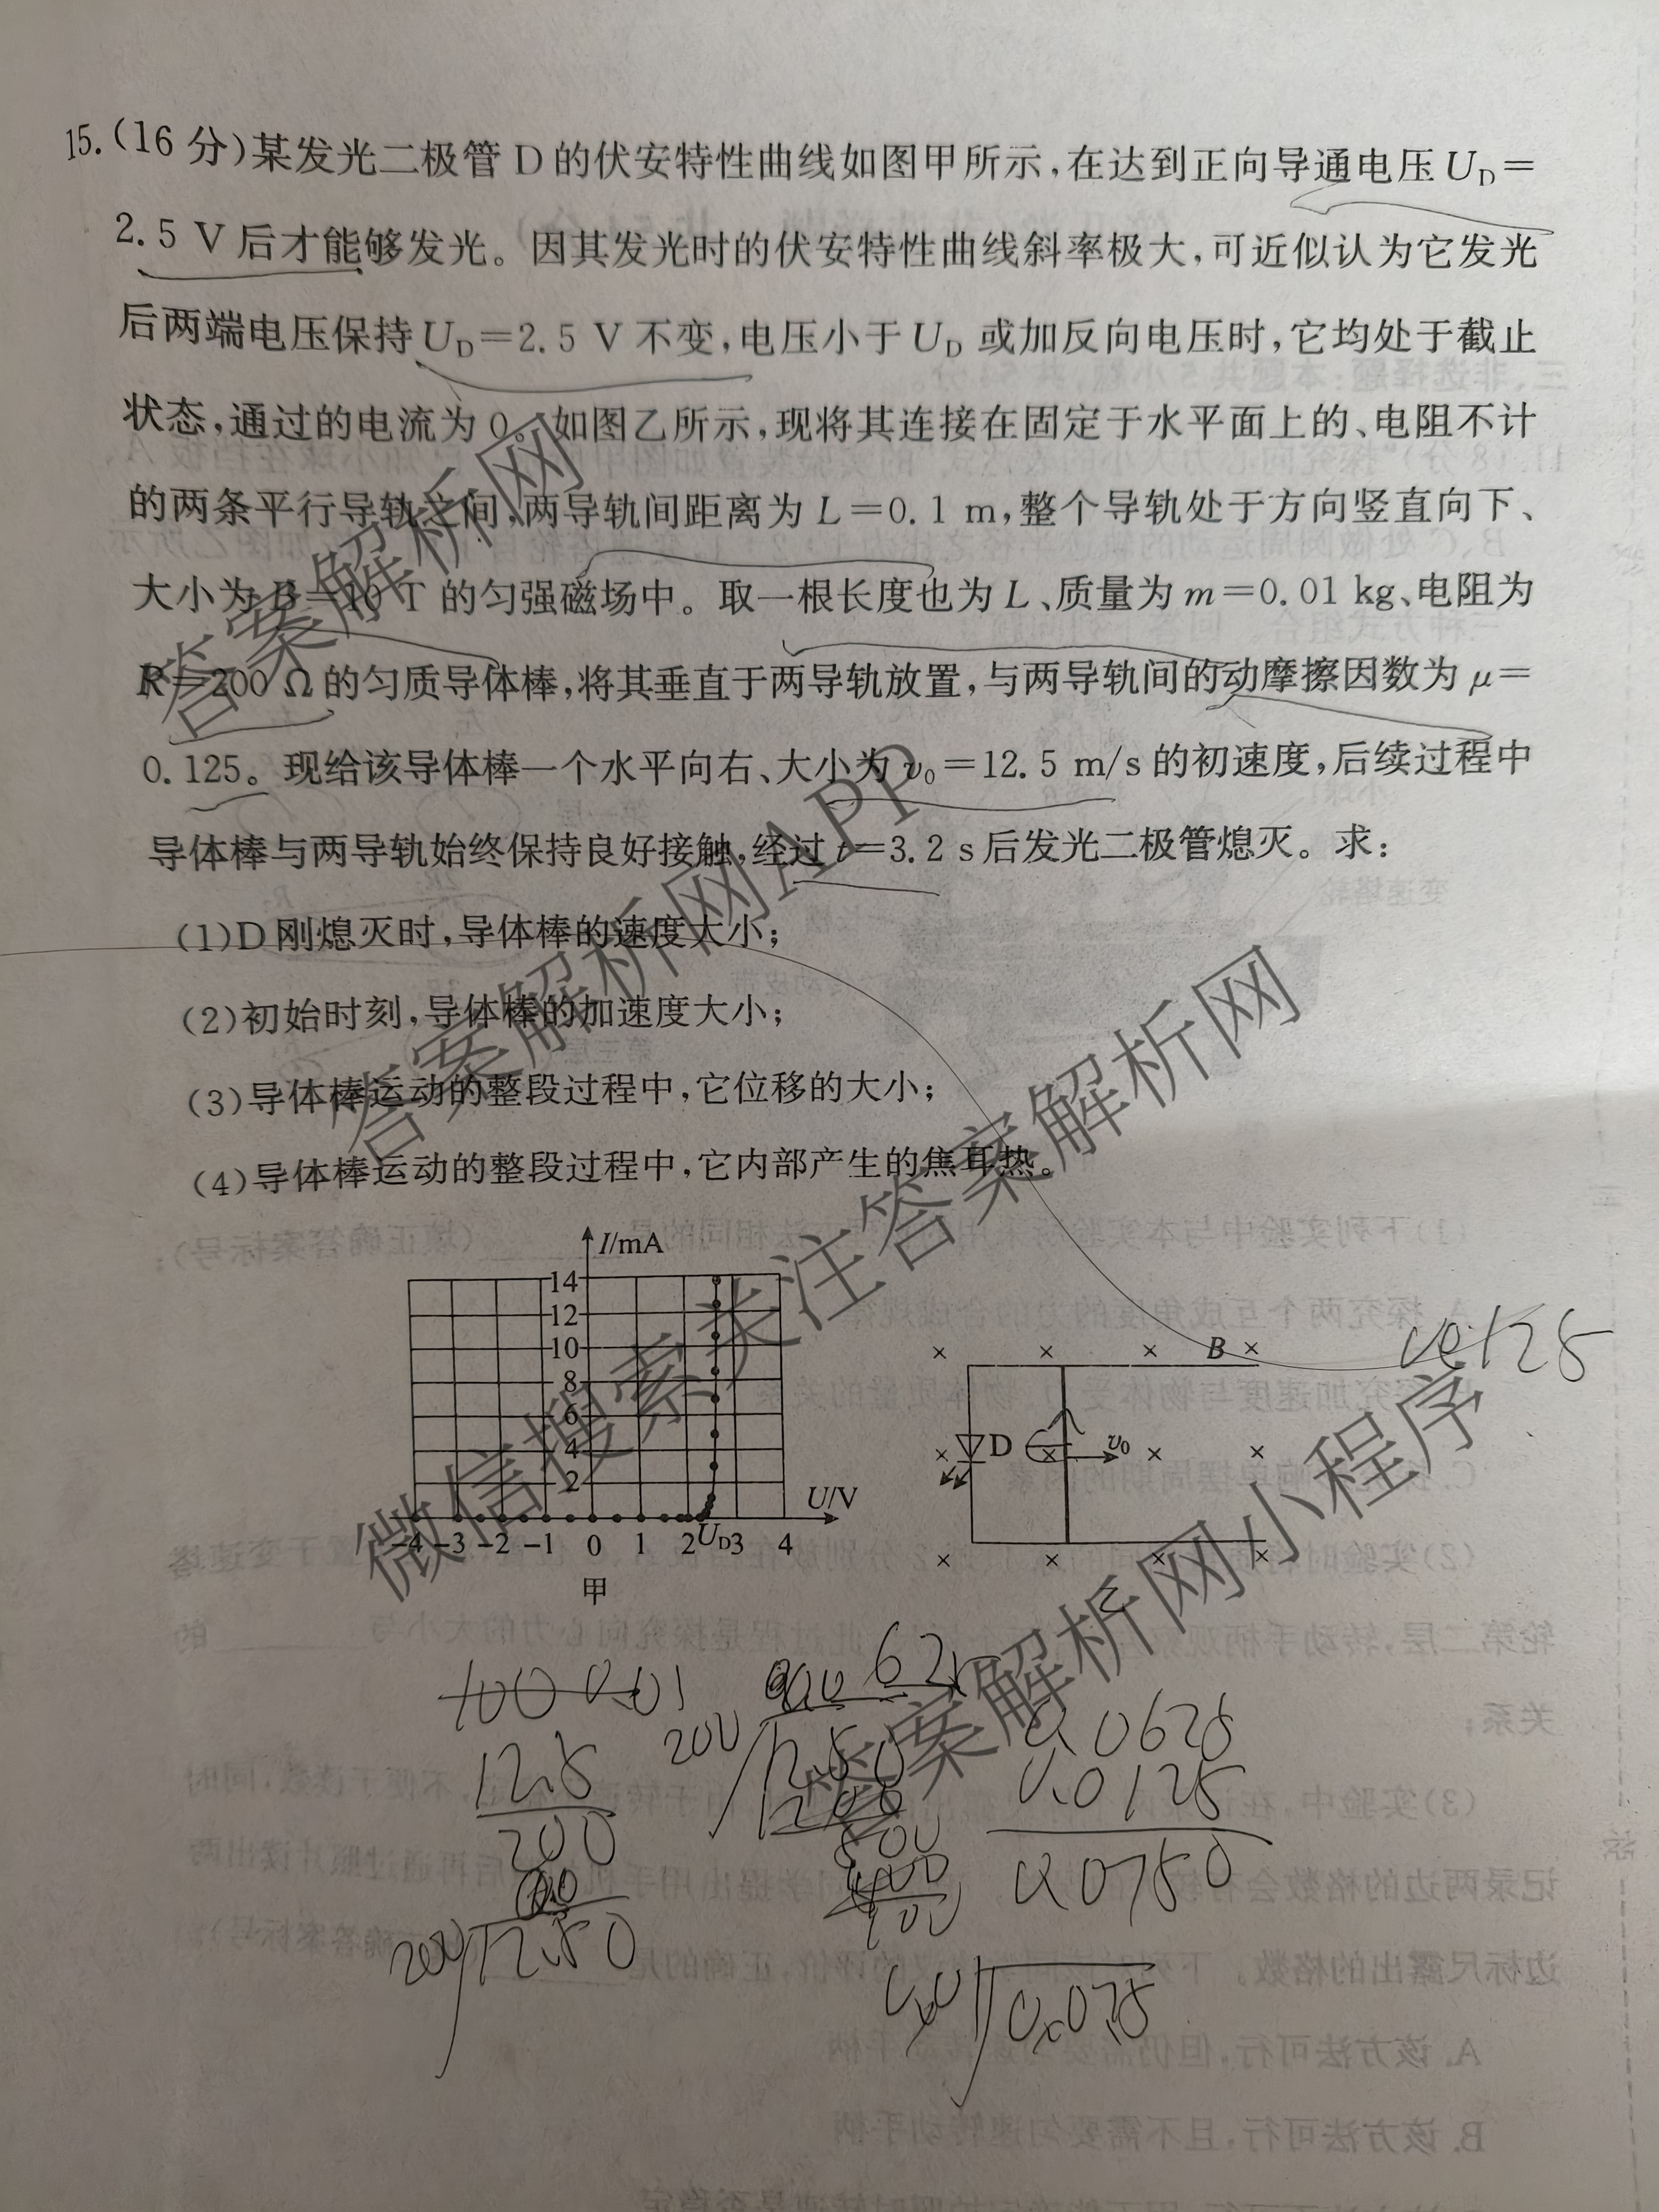 15.(16分)某发光二极管D的伏安特性曲线如图甲所示,在达到正向导通电压U_D=
2.5 V后才能够发光。因其发光时的伏安特性曲线斜率极大,可近似认为它发光
后两端电压保持U_D=2.5 V不变,电压小于U_D或加反向电压时,它均处于截止
状态,通过的电流为0。如图乙所示,现将其连接在固定于水平面上的、电阻不计
的两条平行导轨之间,两导轨间距离为L=0.1 m,整个导轨处于方向竖直向下、
大小为B=10 T的匀强磁场中。取一根长度也为L、质量为m=0.01 kg、电阻为
R=200 Ω的匀质导体棒,将其垂直于两导轨放置,与两导轨间的动摩擦因数为μ=
0.125。现给该导体棒一个水平向右、大小为v₀=12.5 m/s的初速度,后续过程中
导体棒与两导轨始终保持良好接触,经过t=3.2 s后发光二极管熄灭。求:
(1)D刚熄灭时,导体棒的速度大小;
(2)初始时刻,导体棒的加速度大小;
(3)导体棒运动的整段过程中,它位移的大小;
(4)导体棒运动的整段过程中,它内部产生的焦耳热。
I/mA
14
12
10
8
6
4
2
-4 -3 -2 -1 0 1 2 U_D 3 4
U/V
甲
× × × B ×
× D × v₀ × ×
× × × ×
乙
12.5
200
200
12.50
200
12.50
0.0625
0.0125
0.0750
0.075
答案解析网
答案解析网APP
微信搜索关注答案解析网
答案解析网小程序